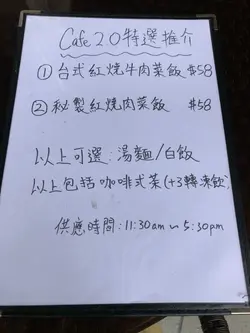 Cafe 2.0 特選推介
① 台式紅燒牛肉菜飯 $58
② 秘製紅燒肉菜飯 $58
以上可選：湯麵/白飯
以上包括咖啡式茶(+3轉凍飲)
供應時間：11:30am ~ 5:30pm